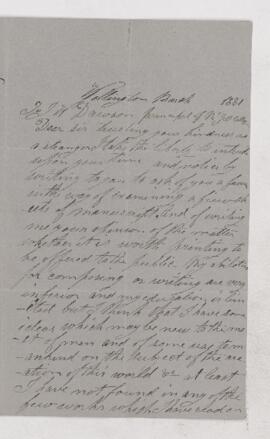 Wallington Barch 1881
To J W Dawson principal of
Dear sir trusting your kindness as
a stranger I take the liberty to intrude
upon your time and notice by
writing to you to ask of you a favor
in the way of examining a few sheets
of manuscript, and of writing
me your opinion of the matter
whether it is worth printing to
be offered to the public. My abilities
for composing or writing are very
inferior and my education is limited
but I think that I have some
ideas which may be new to the most
of men and of some use to
mankind on the subject of the creation
of this world or at least
I have not found in any of the
few works which I have read on